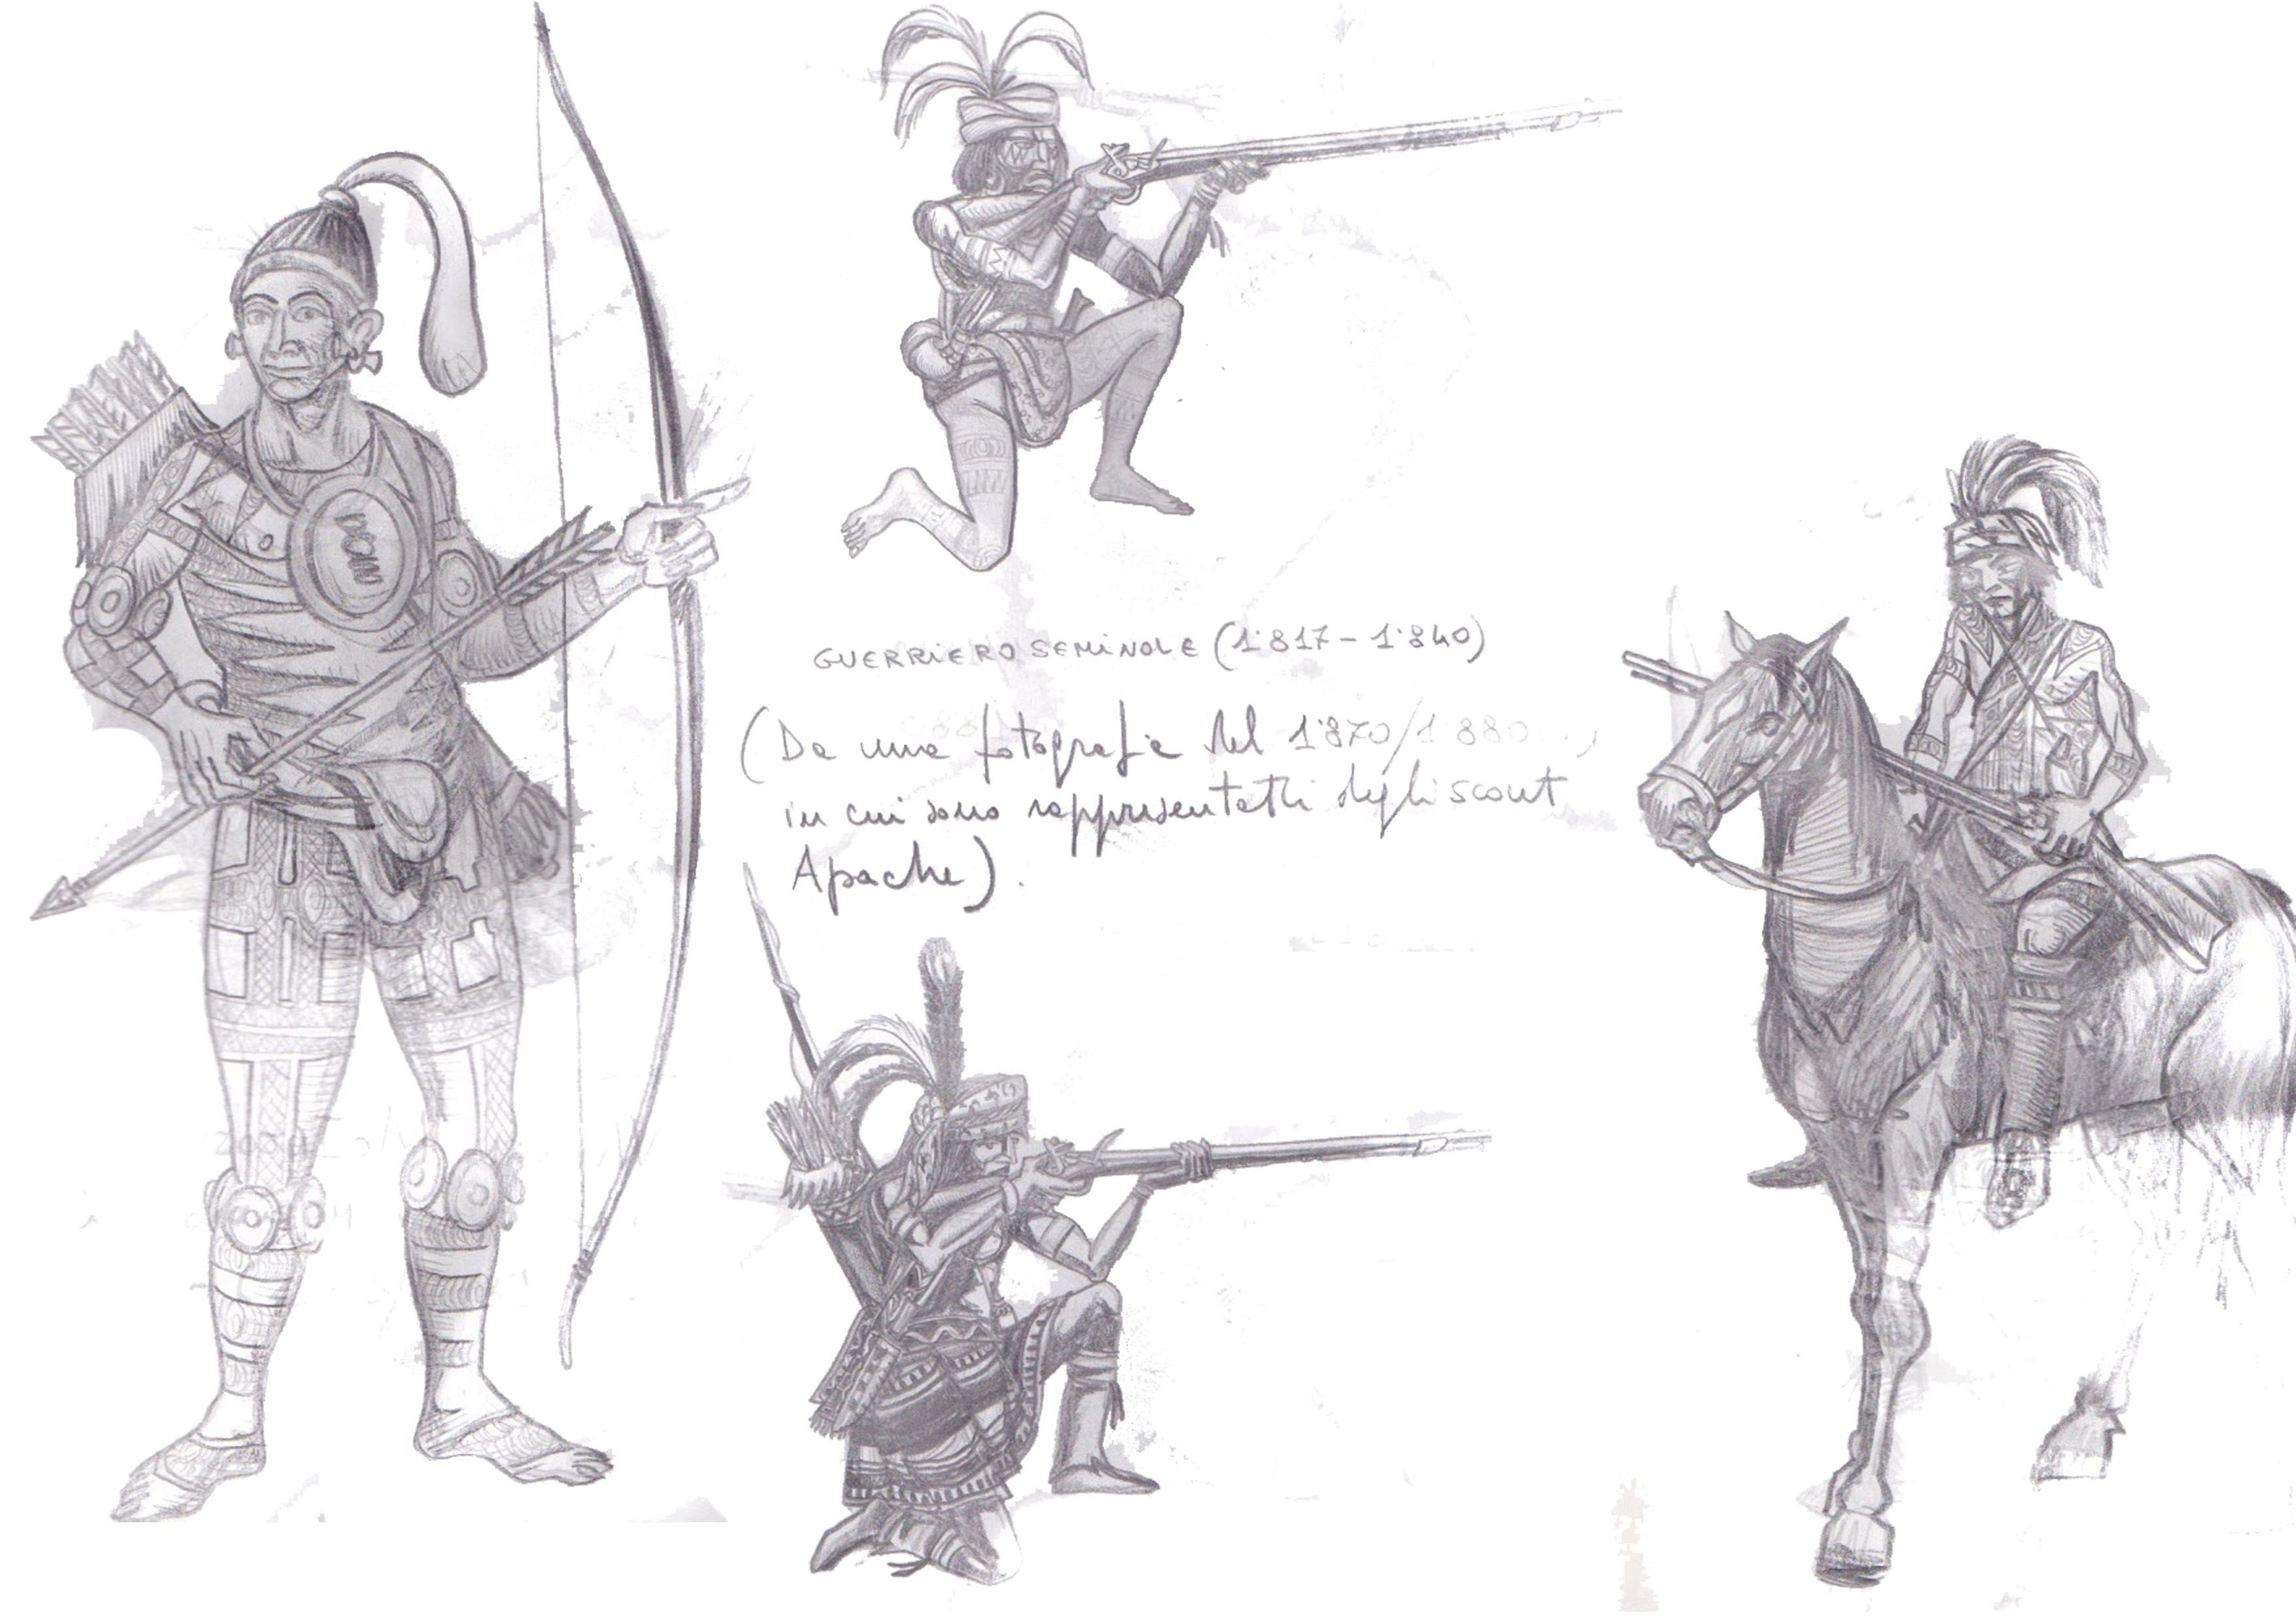 GUERRIERO SEMINOLE (1'817 - 1'840)
(Da una fotografia del 1'870/1'880...,
in cui sono rappresentatti degli scout
Apache).